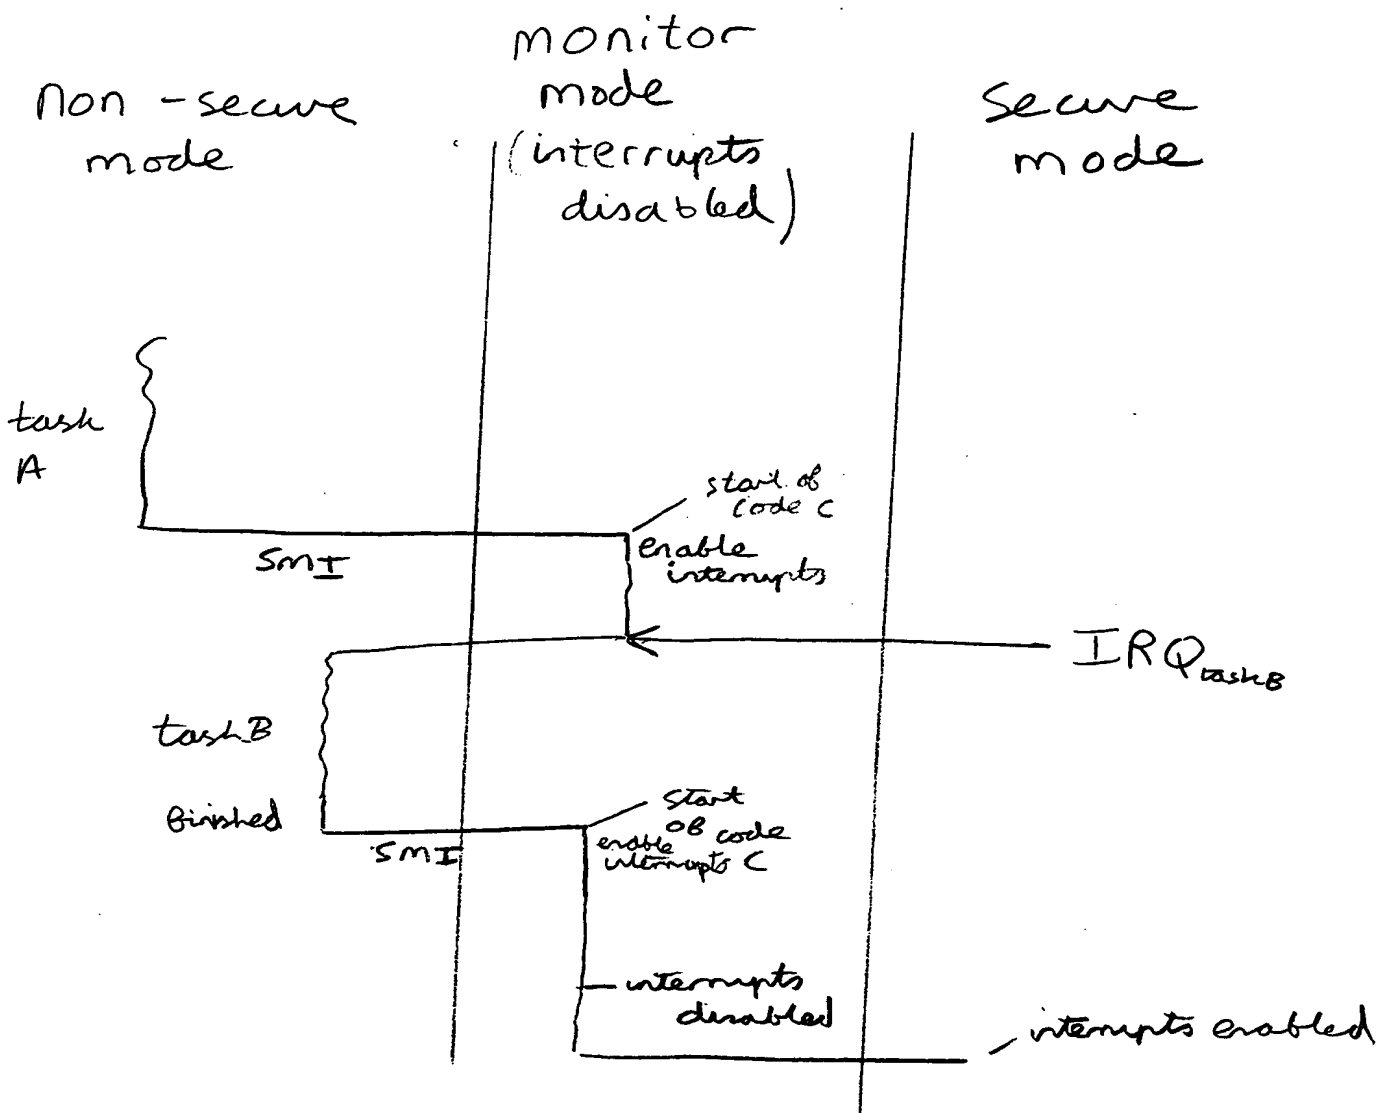 non-secure
mode
monitor
mode
(interrupts
disabled)
secure
mode
task
A
SMI
start of
code C
enable
interrupts
IRQ task B
task B
finished
SMI
start
of code
enable
interrupts C
interrupts
disabled
interrupts enabled